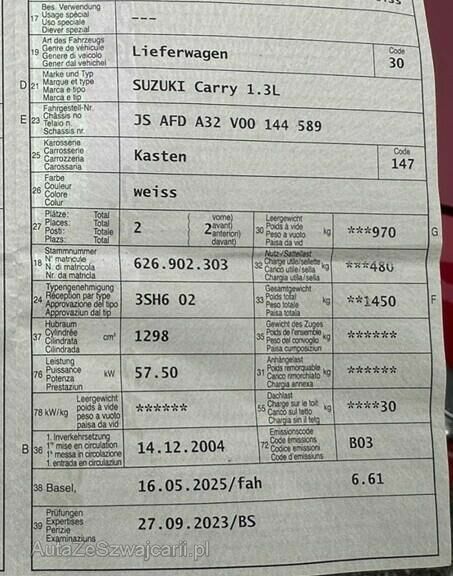 Bes. Verwendung
17 Usage spécial
Uso speciale
Diever spezial
---
Art des Fahrzeugs
19 Genre de véhicule
Genere di veicolo
Gener dal vehichel
Lieferwagen
Code
30
Marke und Typ
D 21 Marque et type
Marca e tipo
Marca e tip
SUZUKI Carry 1.3L
Fahrgestell-Nr.
E 23 Châssis no
Telaio n.
Schassis nr.
JS AFD A32 V00 144 589
Karosserie
25 Carrosserie
Carrozzeria
Carossaria
Kasten
Code
147
Farbe
26 Couleur
Colore
Colur
weiss
Plätze: Total
27 Places: Total
Posti: Totale
Plazs: Total
2
( vorne)
2 avant)
anteriori)
davant)
Leergewicht
30 Poids à vide kg
Peso a vuoto
Paisa da vid
***970
G
Stammnummer
18 N° matricule
N. di matricola
Nr. da matricla
626.902.303
Nutz-/Sattellast
32 Charge utile/sellette kg
Carico utile/sella
Chargia utila/sella
***480
Typengenehmigung
24 Réception par type
Approvazione del tipo
Approvaziun dal tip
3SH6 02
Gesamtgewicht
33 Poids total kg
Peso totale
Paisa totala
**1450
F
Hubraum
37 Cylindrée cm³
Cilindrata
Cilindrada
1298
Gewicht des Zuges
35 Poids de l'ensemble kg
Peso del convoglio
Paisa cumposiziun
******
Leistung
76 Puissance kW
Potenza
Prestaziun
57.50
Anhängelast
31 Poids remorquable kg
Carico rimorchiato
Chargia annexa
******
Leergewicht
78 kW/kg poids à vide
peso a vuoto
paisa da vid
******
Dachlast
55 Charge sur le toit kg
Carico sul tetto
Chargia sin il tetg
****30
1. Inverkehrsetzung
B 36 1re mise en circulation
1a messa in circolazione
1. entrada en circulaziun
14.12.2004
Emissionscode
72 Code émissions
Codice emissioni
Code d'emissiuns
B03
38 Basel,
16.05.2025/fah
6.61
Prüfungen
39 Expertises
Perizie
Examinaziuns
27.09.2023/BS
AutaZeSzwajcarii.pl